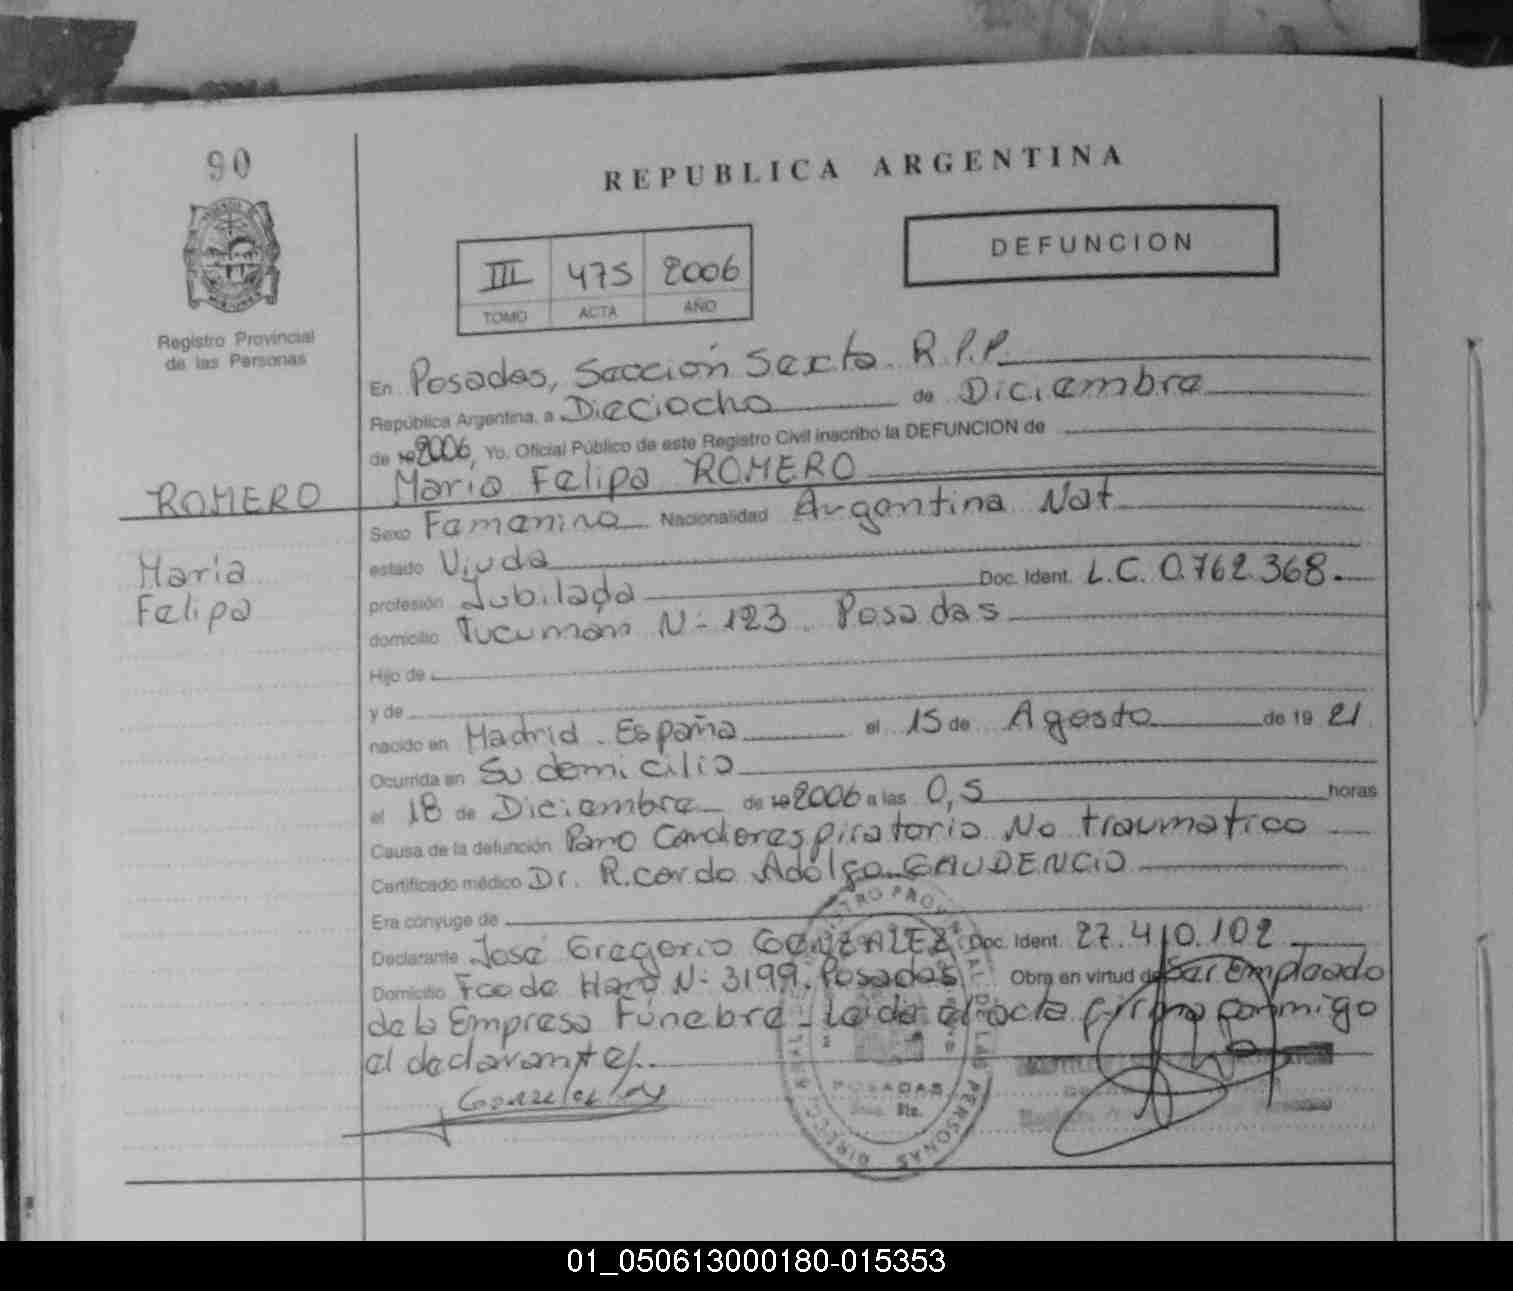 90
REPUBLICA ARGENTINA
III 475 2006
TOMO ACTA AÑO
DEFUNCION
Registro Provincial
de las Personas
En Posadas, Sección Sexta R.P.P.
República Argentina, a Dieciocho de Diciembre
de 19 2006, Yo, Oficial Público de este Registro Civil inscribo la DEFUNCION de
ROMERO María Felipa ROMERO
Sexo Femenino Nacionalidad Argentina Nat
María
Felipa
estado Viuda
profesión Jubilada Doc. Ident. L.C. 0.762.368.
domicilio Tucuman N- 123. Posadas
Hijo de
y de
nacido en Madrid. España el 15 de Agosto de 19 21
Ocurrida en Su domicilio
el 18 de Diciembre de 19 2006 a las 0,5 horas
Causa de la defunción Paro Cardiorespiratorio No traumatico
Certificado médico Dr. Ricardo Adolfo GAUDENCIO
Era cónyuge de
Declarante José Gregorio GONZALEZ Doc. Ident. 27.410.102
Domicilio Fco de Haro N- 3199. Posadas Obra en virtud de Ser Empleado
de la Empresa Fúnebre - Leída el acta firma conmigo
el declarante.
POSADAS
01_050613000180-015353